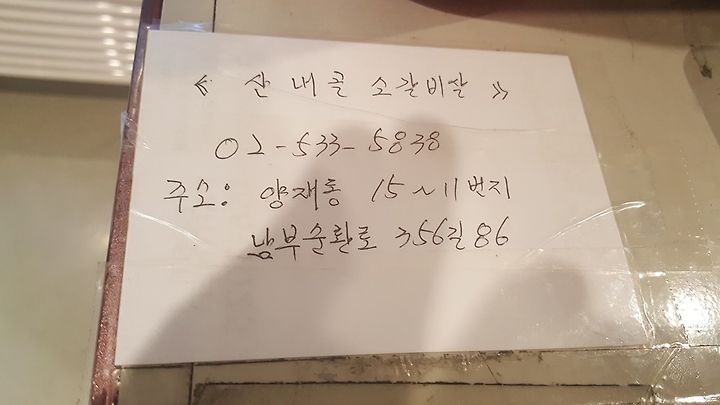 《 산내골 소갈비살 》
02-533-5838
주소: 양재동 15~11번지
남부순환로 356길 86